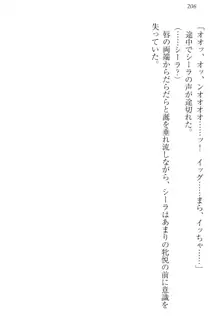 206
「オオッ、オッ、ンオオオオ……ッ！　イッグ……まら、イッちゃ……」
途中でシーラの声が途切れた。
（……シーラ？）
唇の両端からだらだらと涎を垂れ流しながら、シーラはあまりの牝悦に意識を
失っていた。